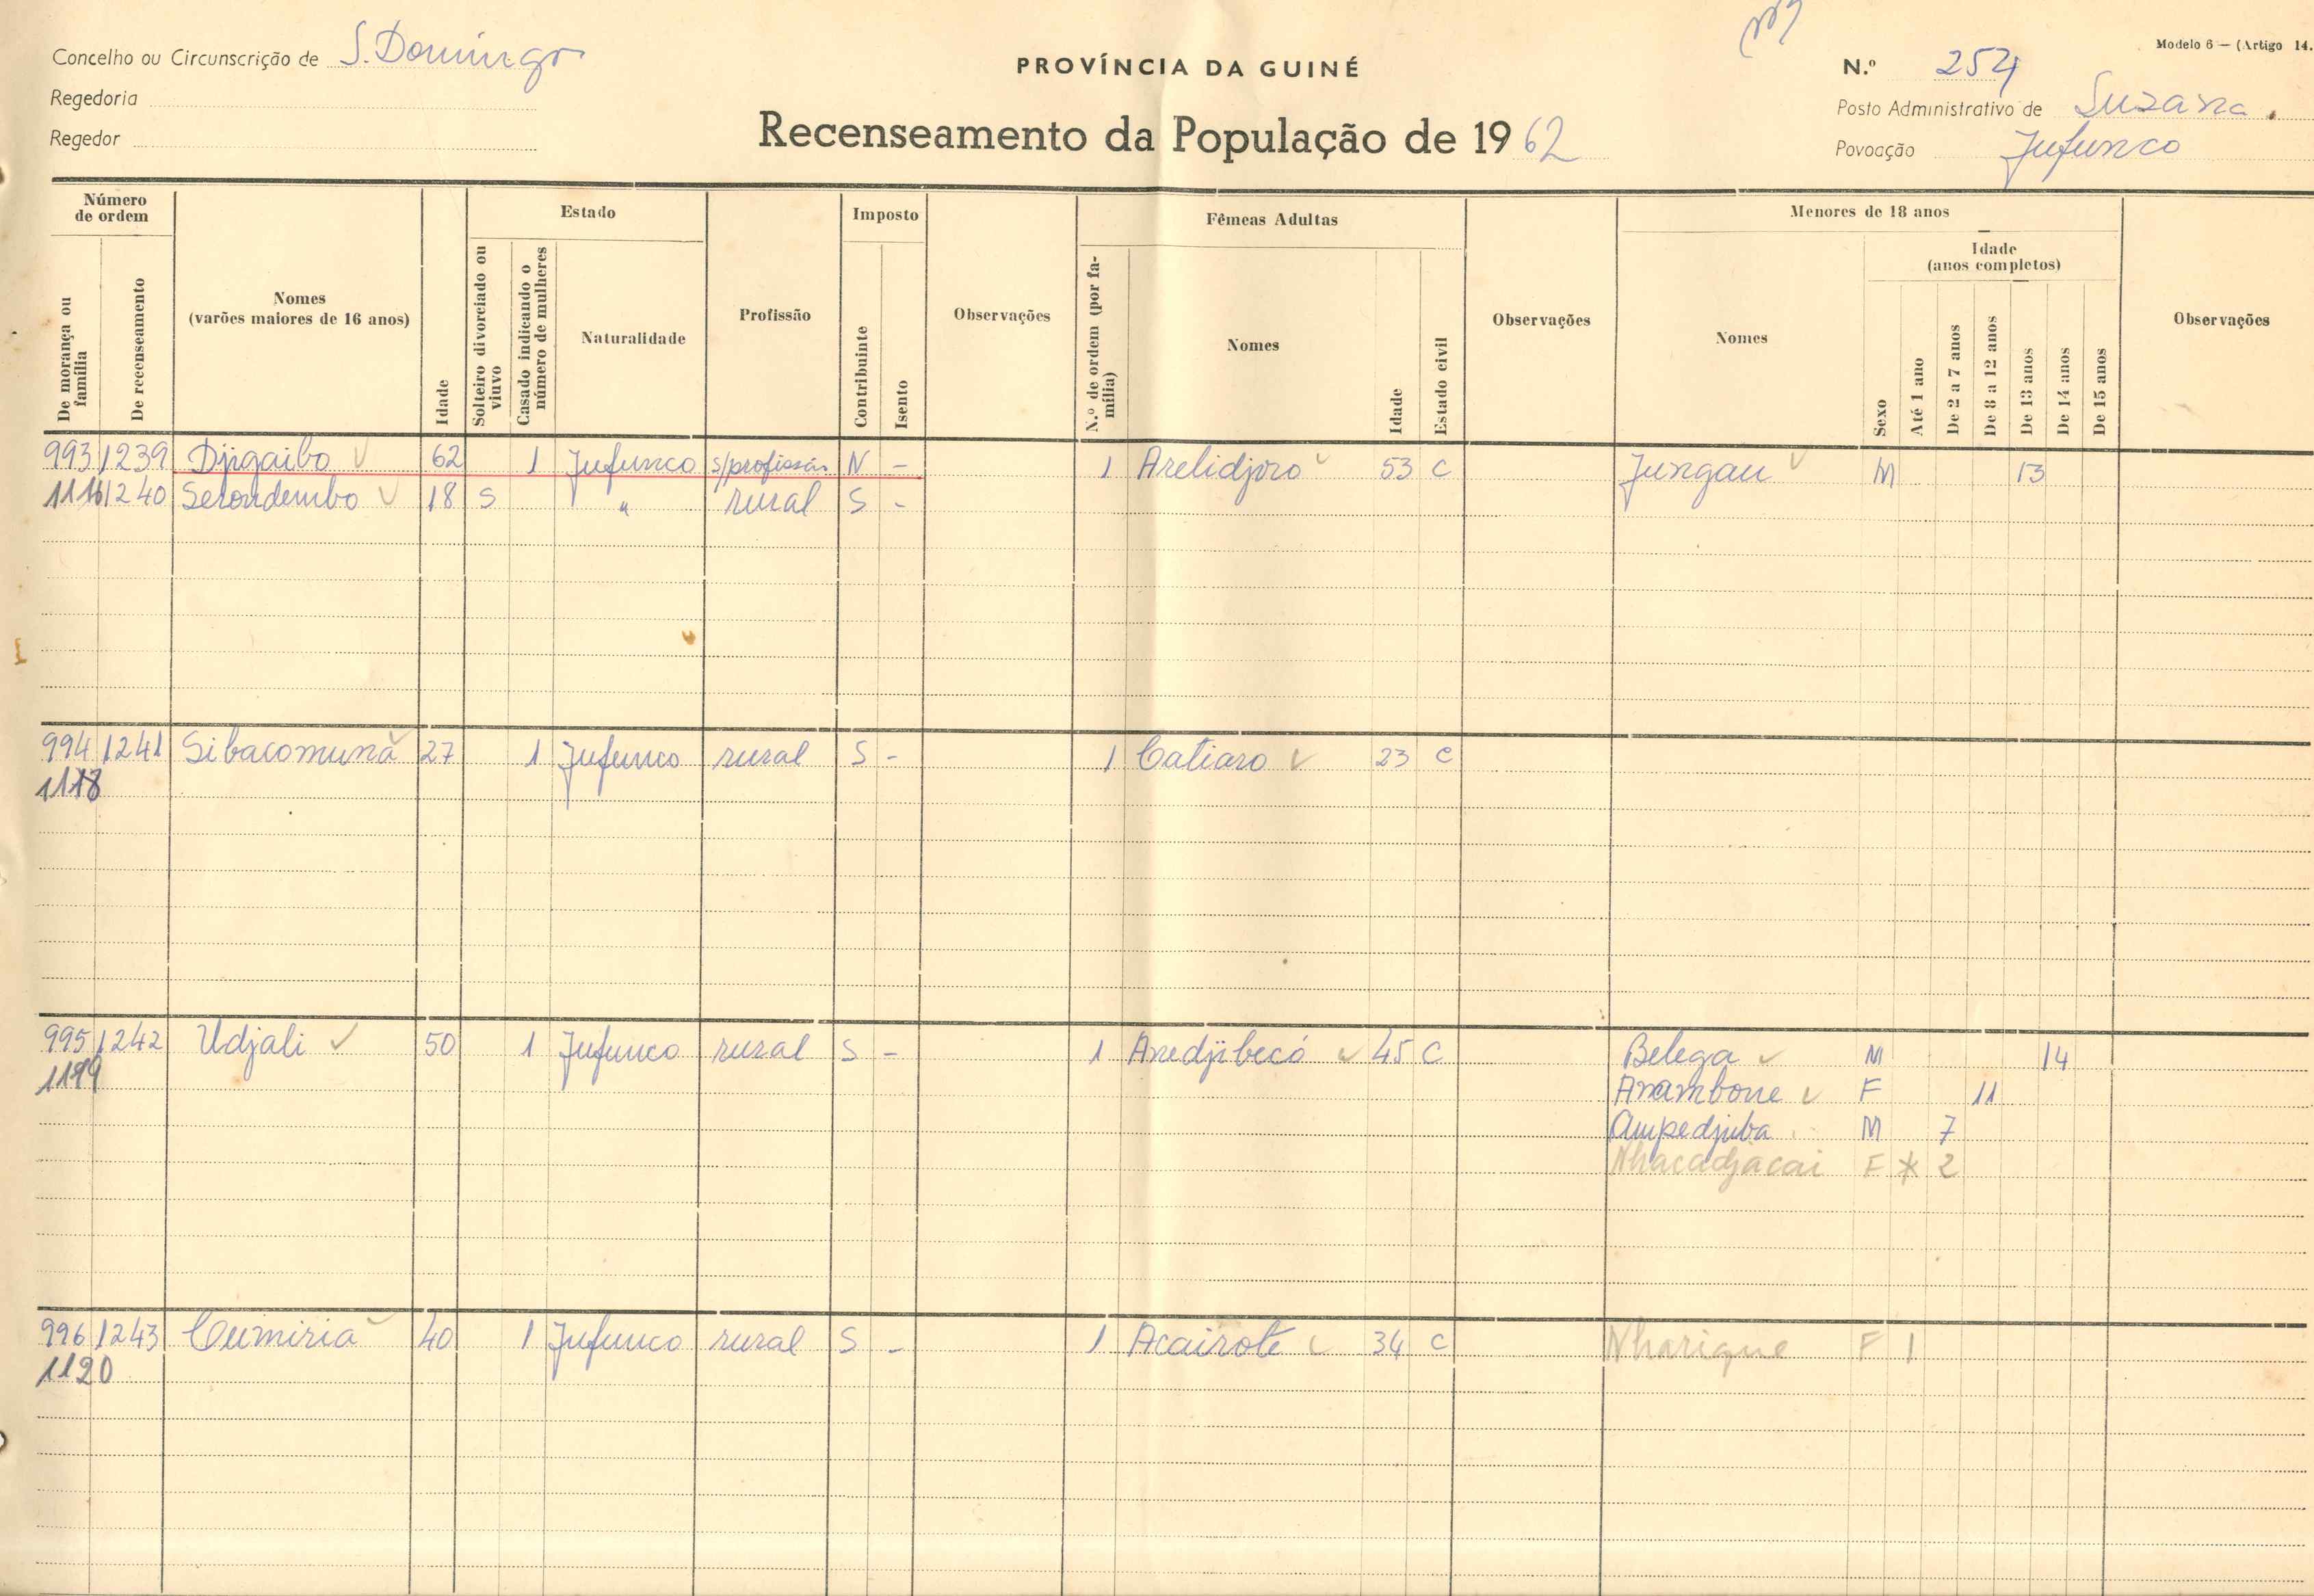 Concelho ou Circunscrição de S. Domingos
Regedoria
Regedor
PROVÍNCIA DA GUINÉ
Recenseamento da População de 1962
Modelo 6 — (Artigo 14.
N.º 254
Posto Administrativo de Suzana.
Povoação Jufunco
Número de ordem
De morança ou família
De recenseamento
Nomes (varões maiores de 16 anos)
Idade
Estado
Solteiro divorciado ou viuvo
Casado indicando o número de mulheres
Naturalidade
Profissão
Imposto
Contribuinte
Isento
Observações
Fêmeas Adultas
N.º de ordem (por família)
Nomes
Idade
Estado civil
Observações
Menores de 18 anos
Nomes
Sexo
Idade (anos completos)
Até 1 ano
De 2 a 7 anos
De 8 a 12 anos
De 13 anos
De 14 anos
De 15 anos
Observações
993 1239 Djigaibo 62 1 Jufunco s/profissão N - 1 Arelidjoro 53 C Jungau M 13
1116 1240 Serondembo 18 S " rural S -
994 1241 Sibacomuna 27 1 Jufunco rural S - 1 Catiaro 23 C
1118
995 1242 Udjali 50 1 Jufunco rural S - 1 Anedjibecó 45 C Belega M 14
1119 Anambone F 11
Ampedjuba M 7
Nhacadjacai F * 2
996 1243 Cumiria 40 1 Jufunco rural S - 1 Acairote 34 C Nharique F 1
1120